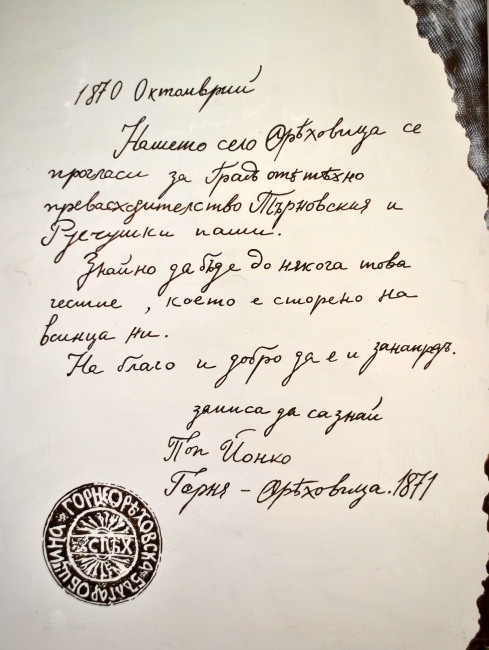 1870 Октомврий
Нашето село Орѣховица се
прогласи за Градъ отъ тѣхно
превасходителство Търновския и
Русчушки паши.
Знайно да бѫде до някога това
честие, което е сторено на
всинца ни.
На благо и добро да е и занапредъ.
записа да са знай
Поп Йонко
Горня - Орѣховица. 1871
ГОРНЕОРѢХОВСКА БЪЛГАР ОБЩИНА